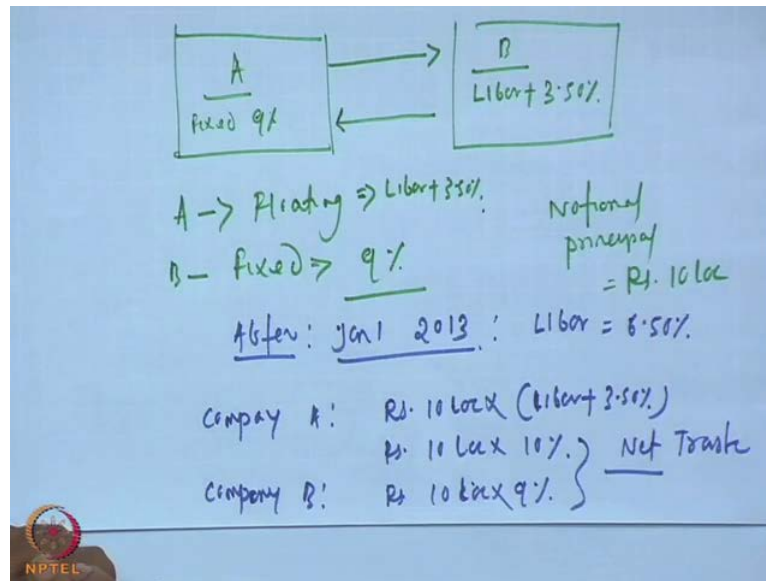 A
fixed 9%
B
Libor + 3.50%.
A -> Floating => Libor + 3.50%.
B - fixed => 9%
Notional
principal
= Rs. 10 lac
After: jan 1 2013: Libor = 6.50%.
Compay A: Rs. 10 lac x (Libor + 3.50%.)
Rs. 10 lac x 10%.
Company B: Rs 10 lac x 9%.
Net
NPTEL